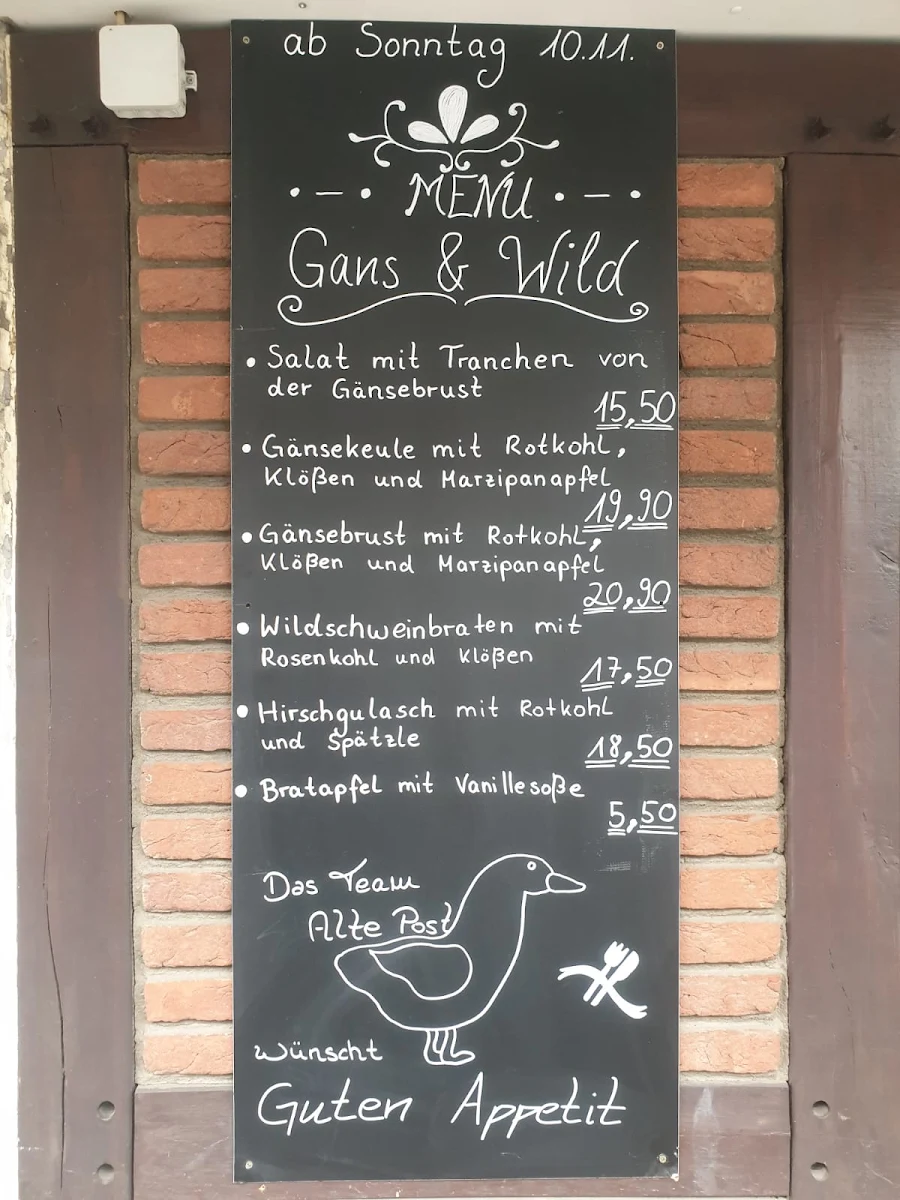 ab Sonntag 10.11.
• – • MENU • – •
Gans & Wild
• Salat mit Tranchen von
der Gänsebrust
15,50
• Gänsekeule mit Rotkohl,
Klößen und Marzipanapfel
19,90
• Gänsebrust mit Rotkohl,
Klößen und Marzipanapfel
20,90
• Wildschweinbraten mit
Rosenkohl und Klößen
17,50
• Hirschgulasch mit Rotkohl
und Spätzle
18,50
• Bratapfel mit Vanillesoße
5,50
Das Team
Alte Post
wünscht
Guten Appetit